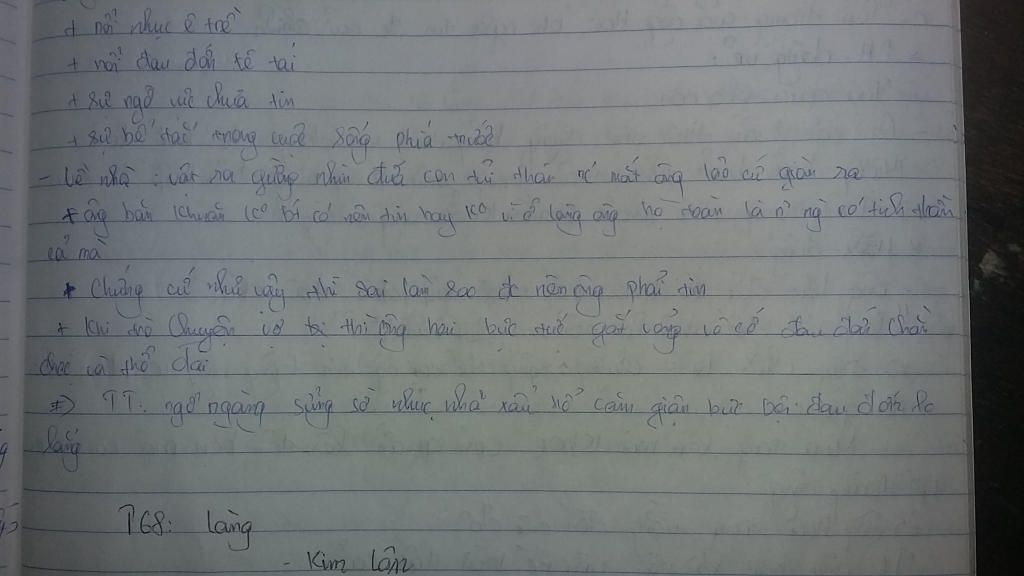 + nỗi nhục ê trề
+ nỗi đau đớn tê tái
+ sự ngờ vực chưa tin
+ sự bế tắc trong cuộc sống phía trước
- Về nhà: vật ra giường nhìn đứa con tủi thân nc mắt ông lão cứ giàn ra
+ ông băn khoăn ko bt có nên tin hay ko vì ở làng ông họ toàn là n~ ng có tinh thần
cả mà
+ Chứng cứ như vậy thì sai làm sao đc nên ông phải tin
+ Khi trò chuyện vợ thì ông hai bực tức gắt gỏng vô cớ đau đớn
và thở dài
=> TT: ngỡ ngàng sững sờ nhục nhã xấu hổ căm giận bực bội đau đớn lo
lắng
T68: Làng
- Kim Lân